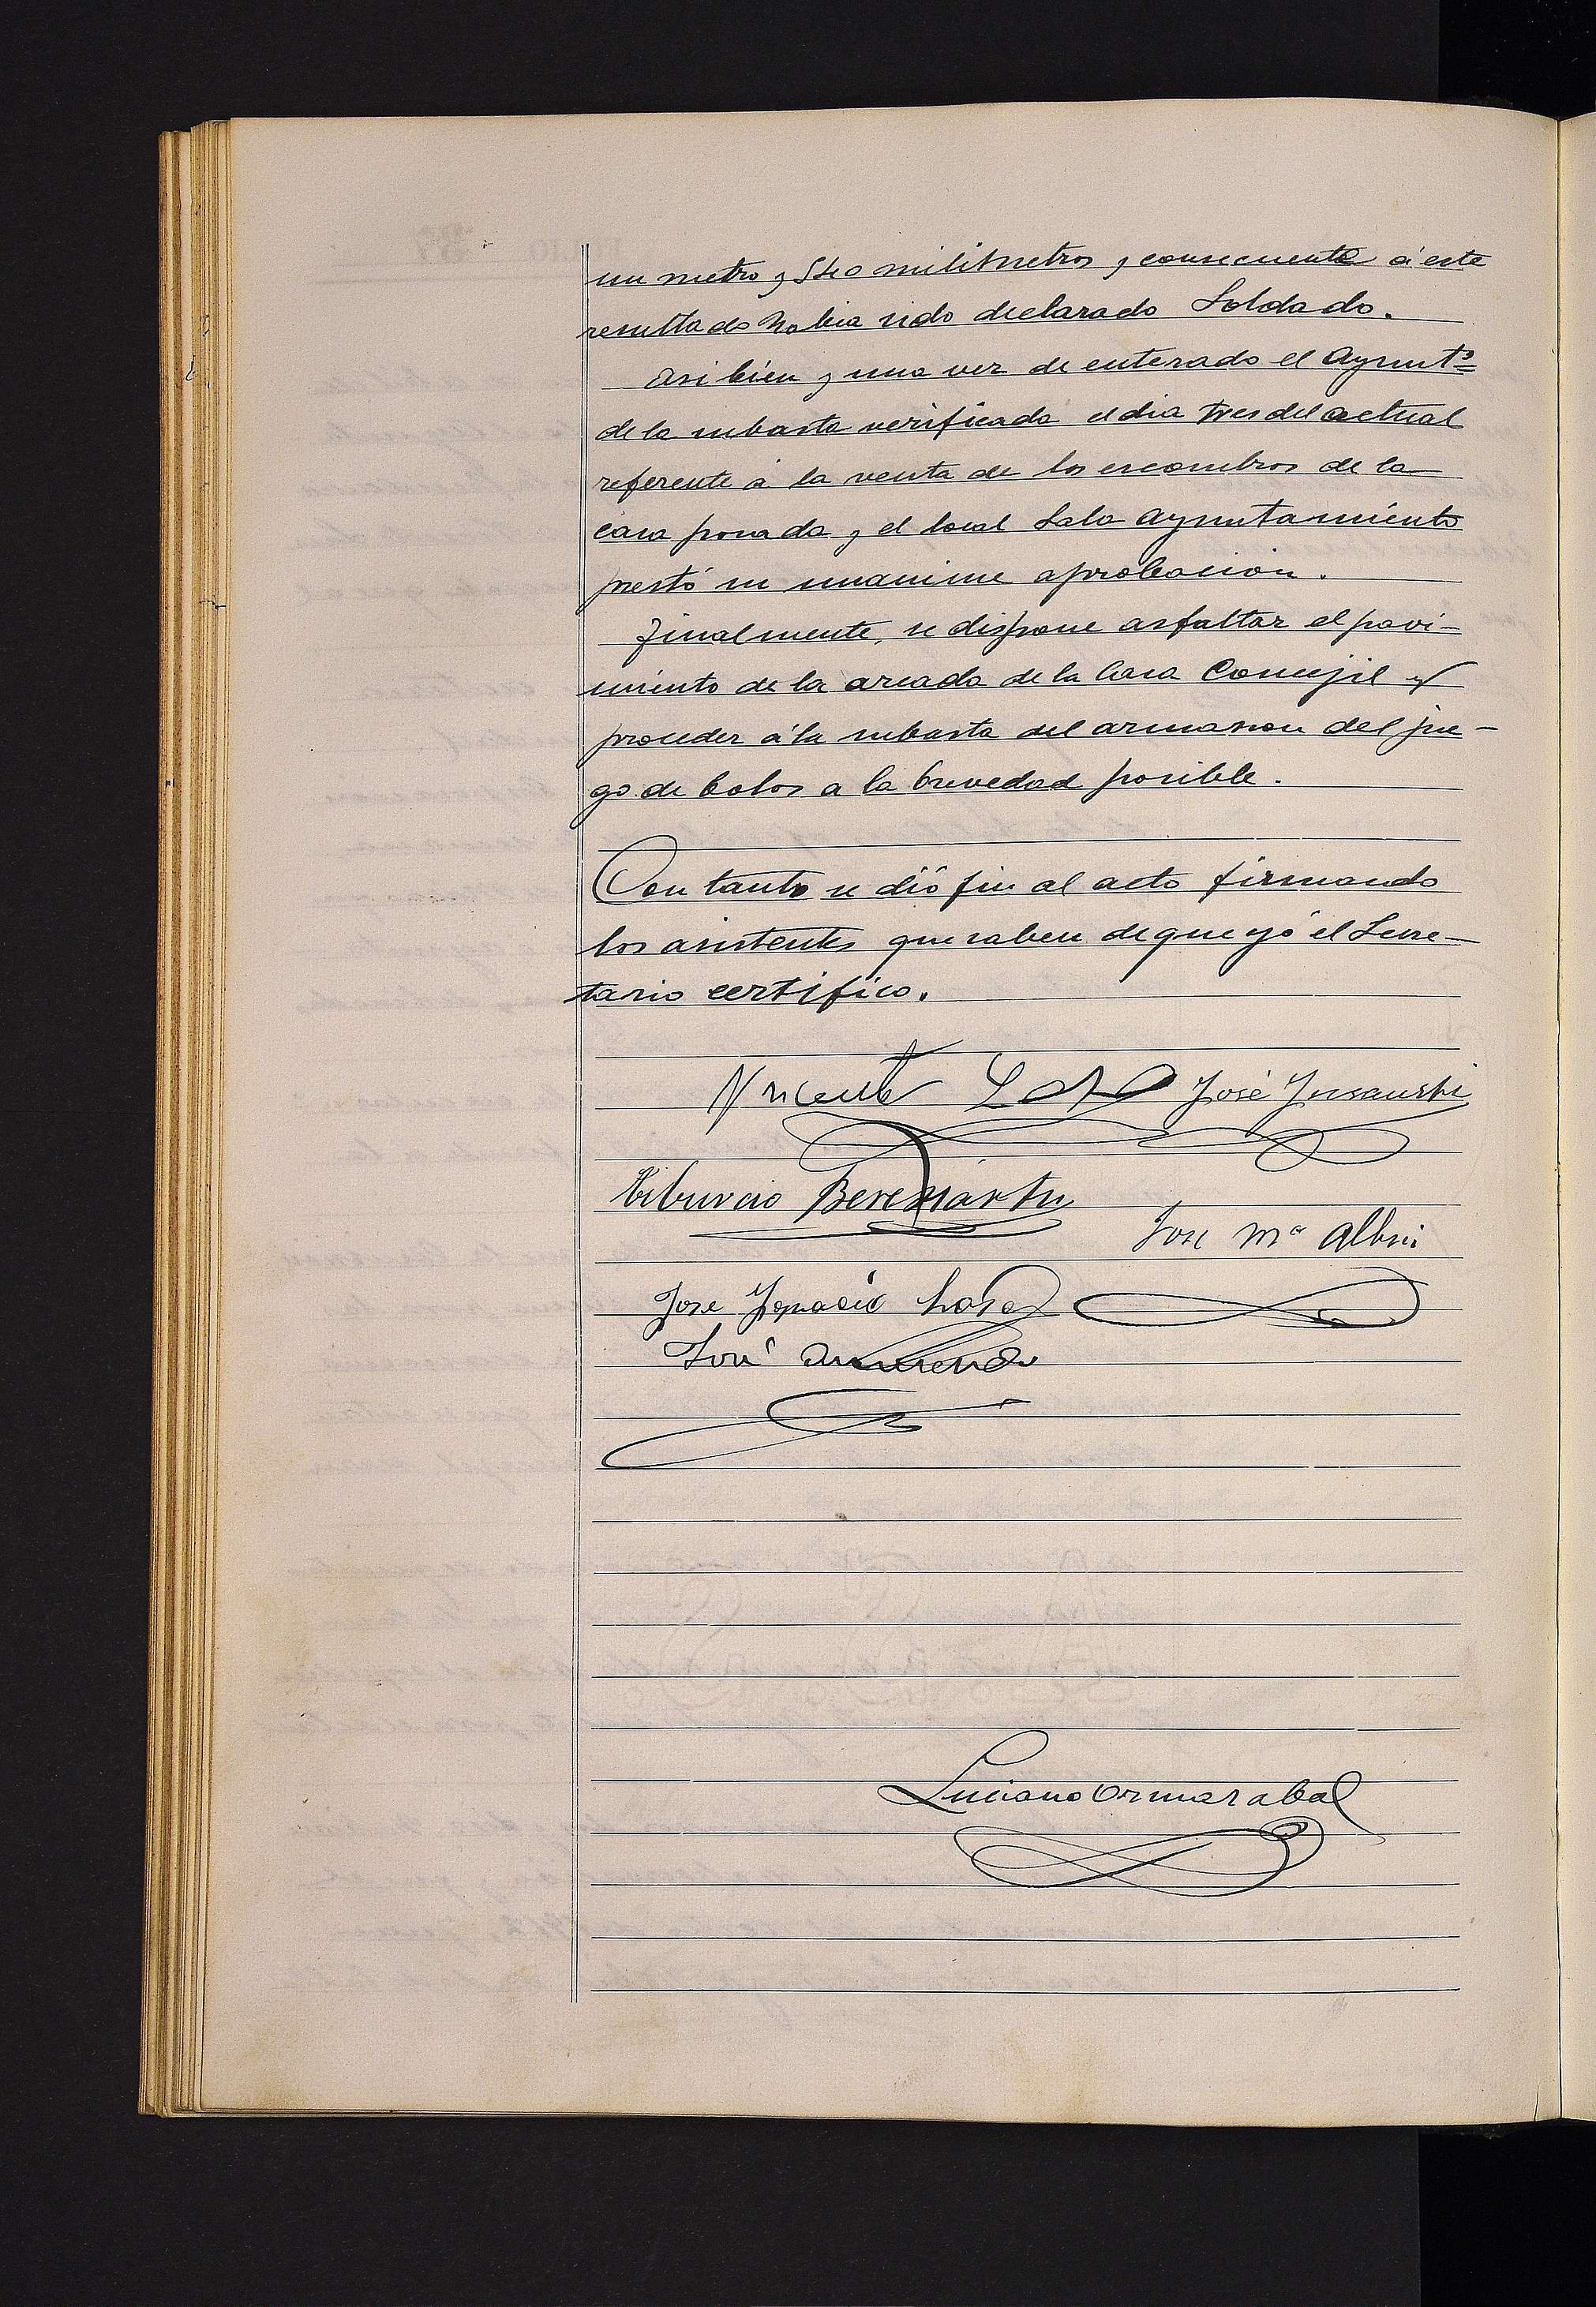 un metro y 540 milimetros y consecuente á este
resultado habia sido declarado Soldado.
Asi bien y una vez de enterado el Ayuntº
de la subasta verificada el dia tres del actual
referente á la venta de los escombros de la
casa posada y el local Sala Ayuntamiento
prestó su unanime aprobacion.
Finalmente, se dispone asfaltar el pavi-
miento de la arcada de la Casa Concejil y
proceder á la subasta del armazon del jue-
go de bolos a la brevedad posible.
Con tanto se dió fin al acto firmando
los asistentes que saben de que yó el Secre-
tario certifico.
Vicente José Insausti
Tiburcio Bereziartu
Jose Mª Albisu
Jose Ignacio Lasa
José
Luciano Ormazabal